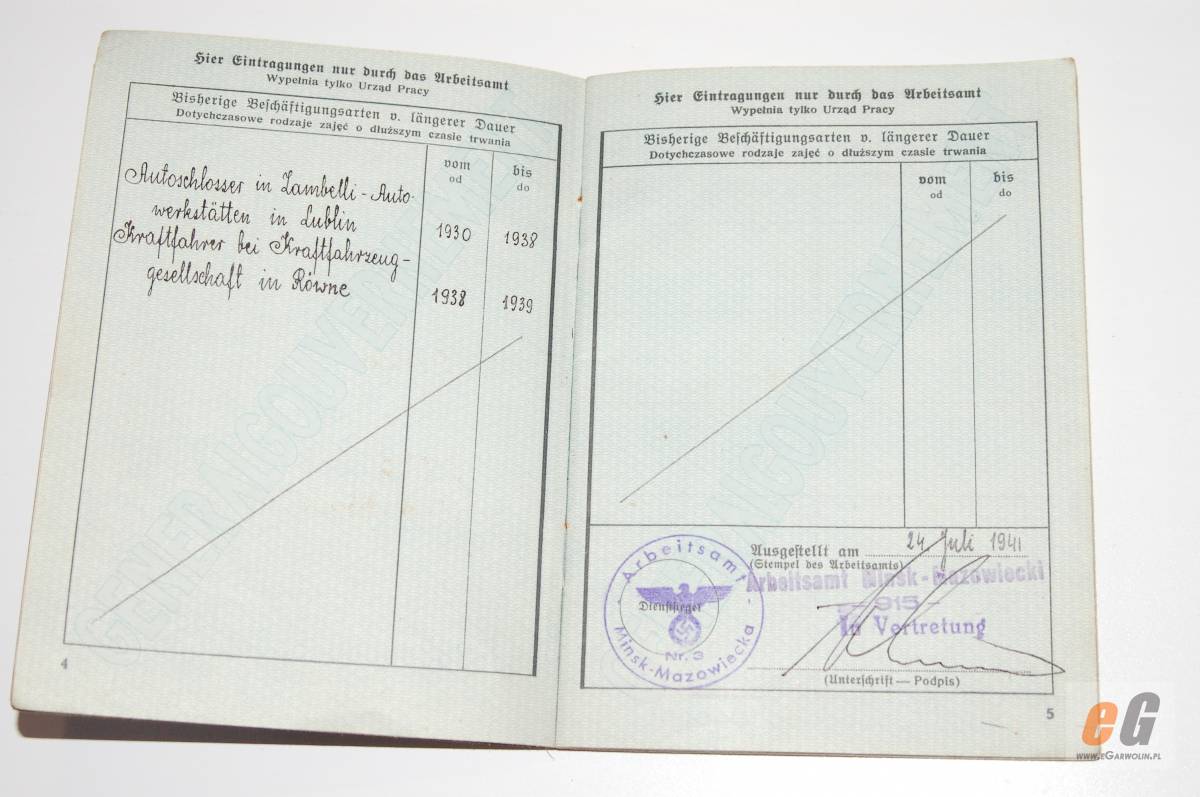 Hier Eintragungen nur durch das Arbeitsamt
Wypełnia tylko Urząd Pracy
Bisherige Beschäftigungsarten v. längerer Dauer
Dotychczasowe rodzaje zajęć o dłuższym czasie trwania
vom bis
od do
Autoschlosser in Zambelli-Auto-
werkstätten in Lublin 1930 1938
Kraftfahrer bei Kraftfahrzeug-
gesellschaft in Równe 1938 1939
GENERALGOUVERNEMENT
4
Hier Eintragungen nur durch das Arbeitsamt
Wypełnia tylko Urząd Pracy
Bisherige Beschäftigungsarten v. längerer Dauer
Dotychczasowe rodzaje zajęć o dłuższym czasie trwania
vom bis
od do
Ausgestellt am 24. Juli 1941
(Stempel des Arbeitsamts)
Arbeitsamt Minsk-Mazowiecki
- 915 -
In Vertretung
(Unterschrift — Podpis)
Arbeitsamt
Dienstsiegel
Nr. 3
Minsk-Mazowiecka
5
eG
www.eGarwolin.pl